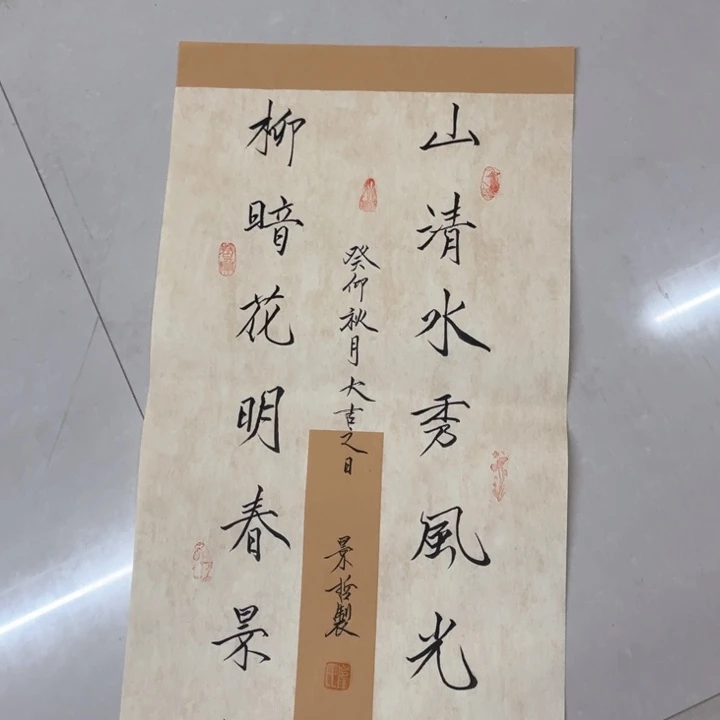 山清水秀風光
柳暗花明春景
癸卯秋月大吉之日
景哲製